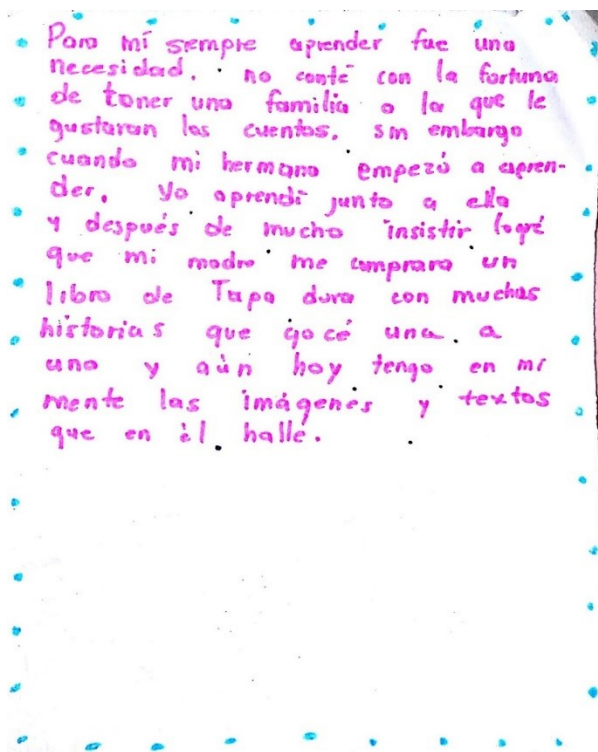 Para mí siempre aprender fue una
necesidad. no conté con la fortuna
de tener una familia a la que le
gustaran los cuentos. sin embargo
cuando mi hermana empezó a apren-
der, yo aprendí junto a ella
y después de mucho insistir logré
que mi madre me comprara un
libro de Tapa dura con muchas
historias que gocé una a
una y aún hoy tengo en mi
mente las imágenes y textos
que en él hallé.